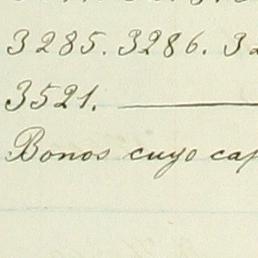 3285. 3286. 32
3521.
Bonos cuyo cap